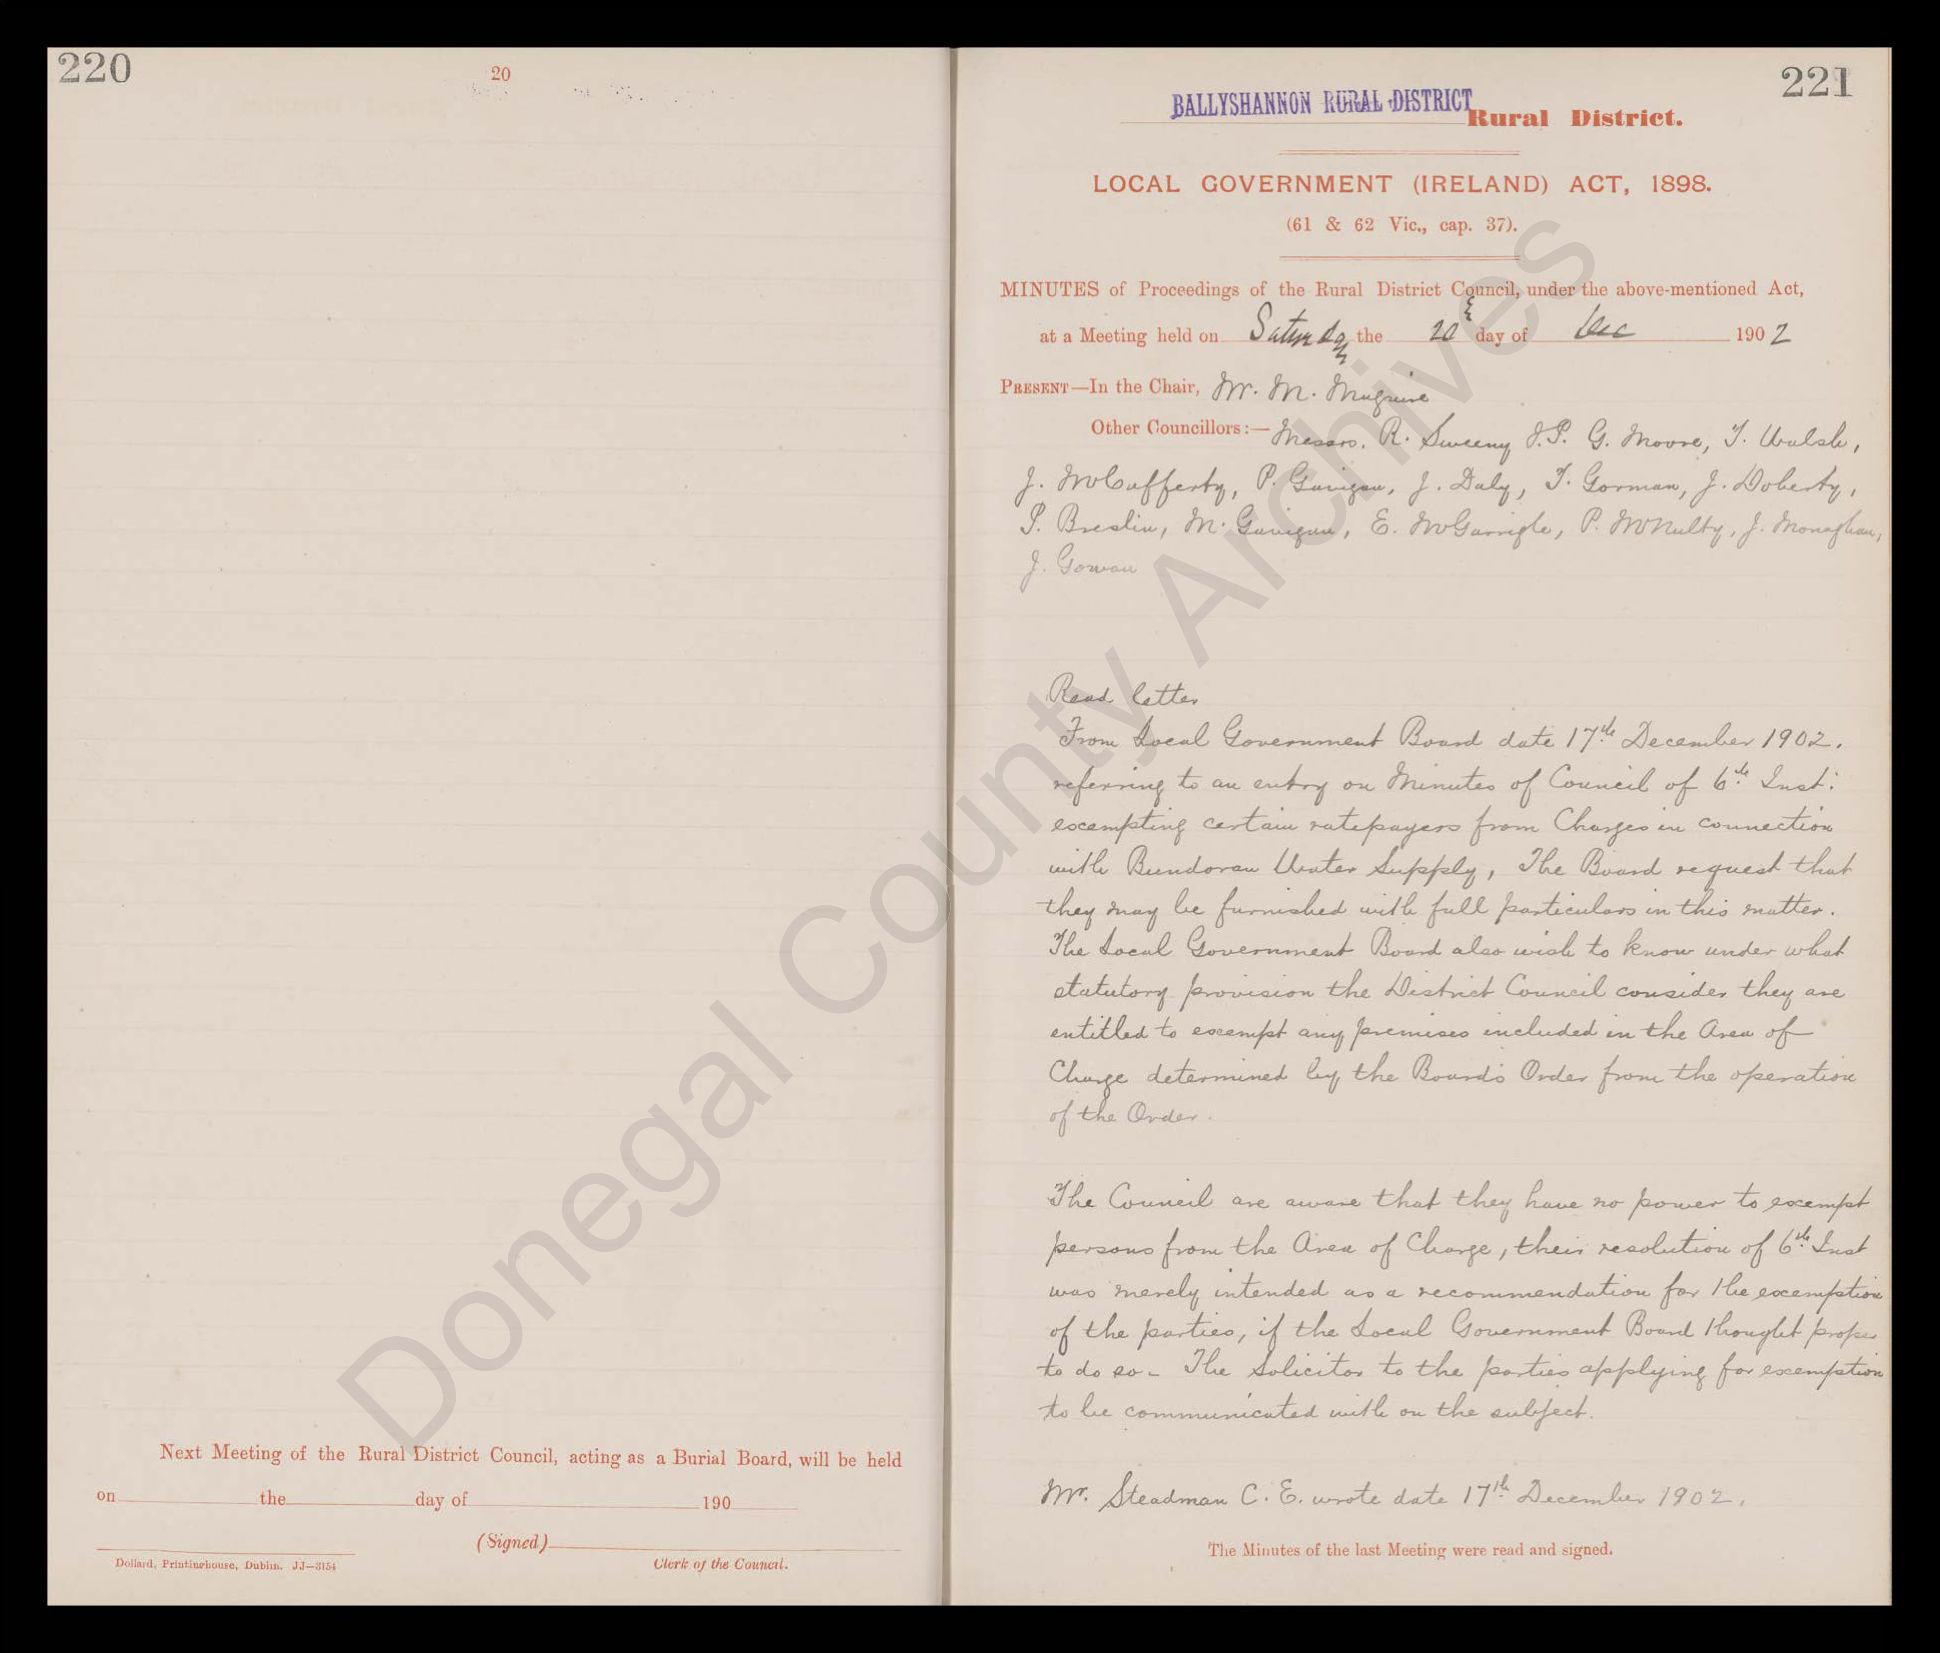 220
20
Next Meeting of the Rural District Council, acting as a Burial Board, will be held
on the day of 190
(Signed)
Dollard, Printinghouse, Dublin. JJ—3154 Clerk of the Council.
221
BALLYSHANNON RURAL DISTRICT Rural District.
LOCAL GOVERNMENT (IRELAND) ACT, 1898.
(61 & 62 Vic., cap. 37).
MINUTES of Proceedings of the Rural District Council, under the above-mentioned Act,
at a Meeting held on Saturday the 20 day of Dec 1902
PRESENT—In the Chair, Mr. M. Maguire
Other Councillors:— Messrs. R. Sweeny J.P. G. Moore, T. Walsh,
J. McCafferty, P. Gavigan, J. Daly, T. Gorman, J. Doherty,
P. Breslin, M. Gavigan, E. McGarrigle, P. McNulty, J. Monaghan,
J. Gowan
Read letter
From Local Government Board date 17th December 1902.
referring to an entry on Minutes of Council of 6th Inst:
exempting certain ratepayers from Charges in connection
with Bundoran Water Supply, The Board request that
they may be furnished with full particulars in this matter.
The Local Government Board also wish to know under what
statutory provision the District Council consider they are
entitled to exempt any premises included in the Area of
Charge determined by the Board's Order from the operation
of the Order.
The Council are aware that they have no power to exempt
persons from the Area of Charge, their resolution of 6th Inst
was merely intended as a recommendation for the exemption
of the parties, if the Local Government Board thought proper
to do so - The Solicitor to the parties applying for exemption
to be communicated with on the subject.
Mr. Steadman C. E. wrote date 17th December 1902.
The Minutes of the last Meeting were read and signed.
Donegal County Archives